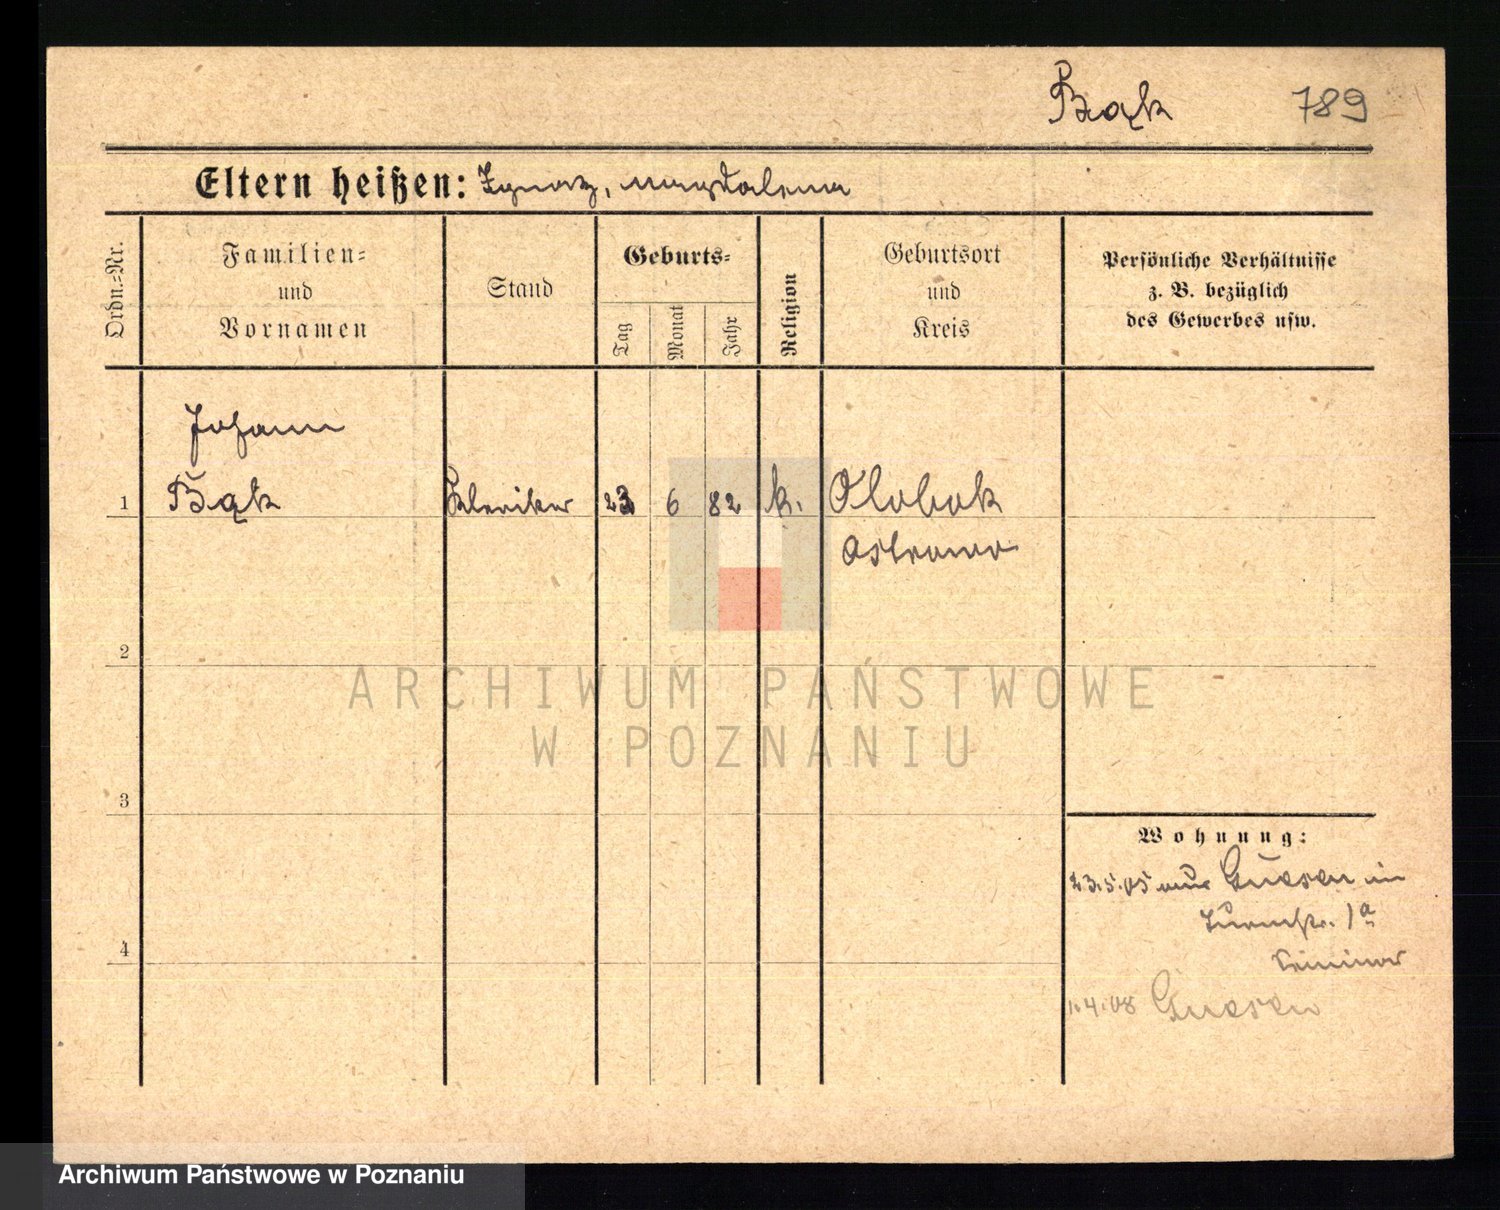 Bąk 789
Eltern heißen: Ignatz, Magdalena
Ordn.-Nr.
Familien-
und
Vornamen
Stand
Geburts-
Tag
Monat
Jahr
Religion
Geburtsort
und
Kreis
Persönliche Verhältnisse
z. B. bezüglich
des Gewerbes usw.
Johann
1 Bąk Kleriker 23 6 82 k. Olobok
Ostrowo
2
3
4
Wohnung:
23.5.05 Gnesen
Turmstr. 1a
Seminar
1.4.08 Gnesen
ARCHIWUM PAŃSTWOWE
W POZNANIU
Archiwum Państwowe w Poznaniu